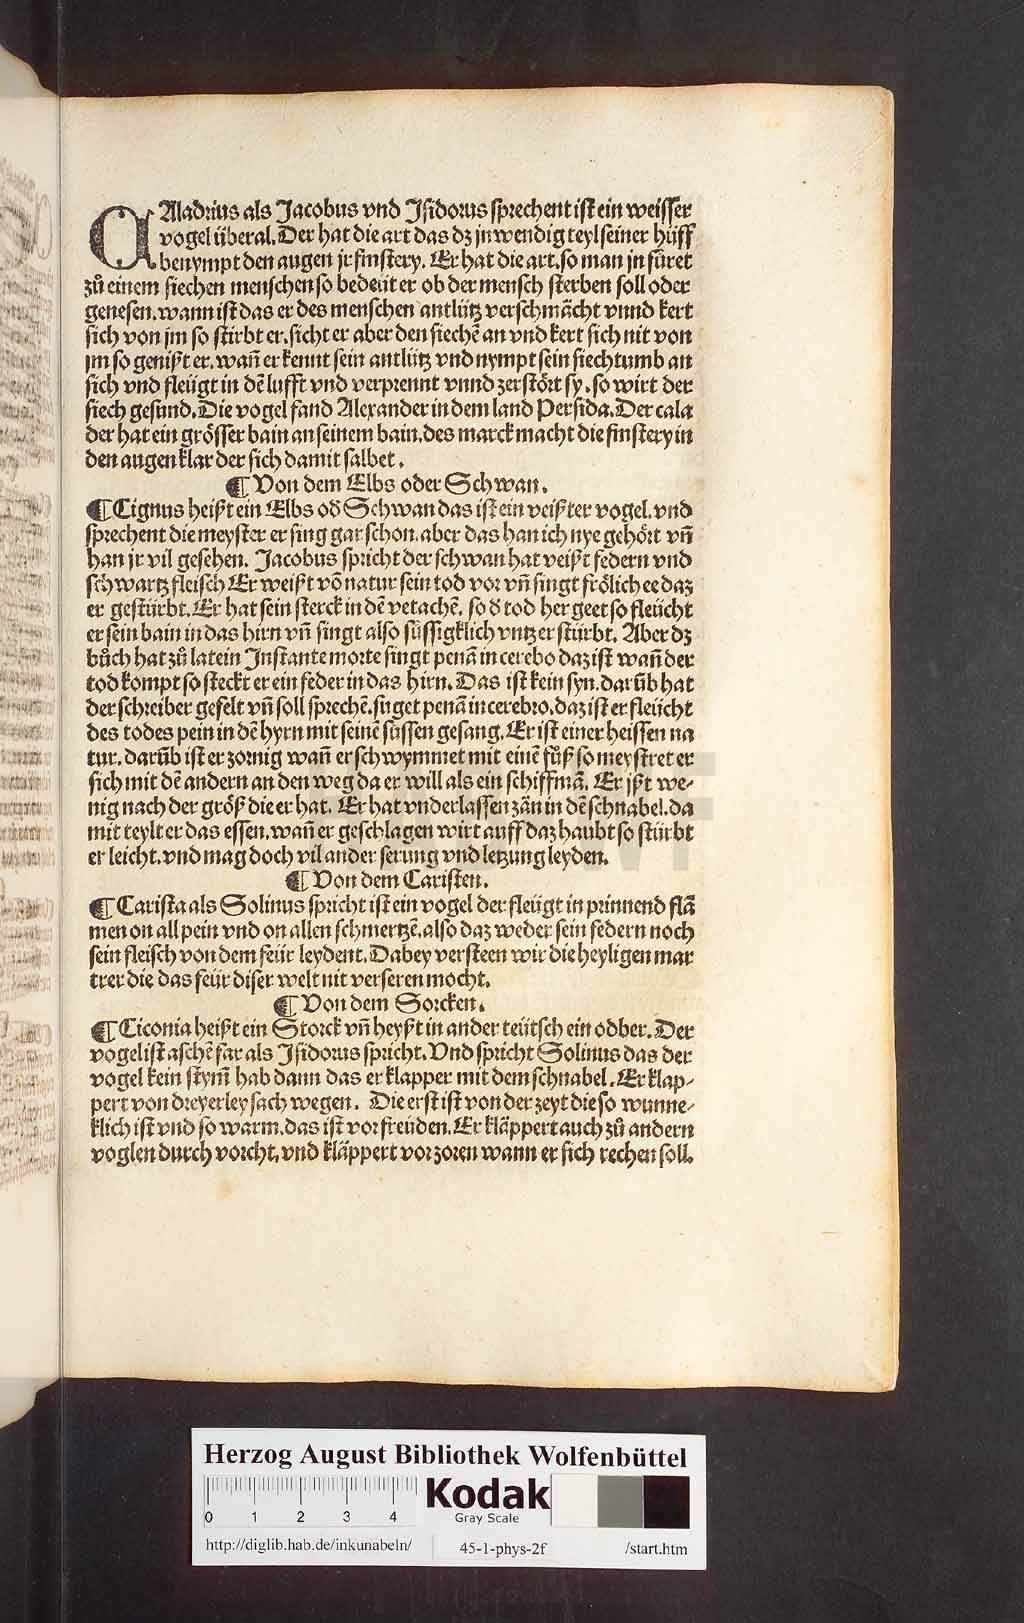 CAladrius als Jacobus vnd Jsidorus sprechent ist ein weisser
vogel überal. Der hat die art das dz jnwendig teyl seiner hüff
benympt den augen jr finstery. Er hat die art. so man jn füret
zů einem siechen menschen so bedeüt er ob der mensch sterben soll oder
genesen. wann ist das er des menschen antlütz verschmächt vnnd kert
sich von jm so stirbt er. sicht er aber den siechē an vnd kert sich nit von
jm so genißt er. wañ er kennt sein antlütz vnd nympt sein siechtumb an
sich vnd fleügt in dē lufft vnd verprennt vnnd zerstört sy. so wirt der
siech gesund. Die vogel fand Alexander in dem land Persida. Der cala
der hat ein grösser bain an seinem bain. des marck macht die finstery in
den augen klar der sich damit salbet.
¶ Von dem Elbs oder Schwan.
¶ Cignus heißt ein Elbs od Schwan das ist ein veißter vogel. vnd
sprechent die meyster er sing gar schon. aber das han ich nye gehört vñ
han jr vil gesehen. Jacobus spricht der schwan hat veißt federn vnd
schwartz fleisch Er weißt vō natur sein tod vor vñ singt frölich ee daz
er gestürbt. Er hat sein sterck in dē vetachē. so d tod her geet so fleücht
er sein bain in das hirn vñ singt also süssigklich vntz er stürbt. Aber dz
bůch hat zů latein Jnstante morte singt penā in cerebo daz ist wañ der
tod kompt so steckt er ein feder in das hirn. Das ist kein syn. darūb hat
der schreiber gefelt vñ soll sprechē. fuget penā in cerebro. daz ist er fleücht
des todes pein in dē hyrn mit seinē süssen gesang. Er ist einer heissen na
tur. darūb ist er zornig wañ er schwymmet mit einē fůß so meystret er
sich mit dē andern an den weg da er will als ein schiffmā. Er jßt we-
nig nach der größ die er hat. Er hat vnderlassen zän in dē schnabel. da
mit teylt er das essen. wañ er geschlagen wirt auff daz haubt so stürbt
er leicht. vnd mag doch vil ander serung vnd letzung leyden.
¶ Von dem Caristen.
¶ Carista als Solinus spricht ist ein vogel der fleügt in prinnend flā
men on all pein vnd on allen schmertzē. also daz weder sein federn noch
sein fleisch von dem feür leydent. Dabey versteen wir die heyligen mar
trer die das feür diser welt nit verseren mocht.
¶ Von dem Sorcken.
¶ Ciconia heißt ein Storck vñ heyßt in ander teütsch ein odber. Der
vogel ist aschē far als Jsidorus spricht. Vnd spricht Solinus das der
vogel kein stym̄ hab dann das er klapper mit dem schnabel. Er klap-
pert von dreyerley sach wegen. Die erst ist von der zeyt die so wunne-
klich ist vnd so warm. das ist vor freüden. Er kläppert auch zů andern
voglen durch vorcht. vnd kläppert vor zoren wann er sich rechen soll.
Herzog August Bibliothek Wolfenbüttel
0 1 2 3 4
Kodak
Gray Scale
http://diglib.hab.de/inkunabeln/ 45-1-phys-2f /start.htm